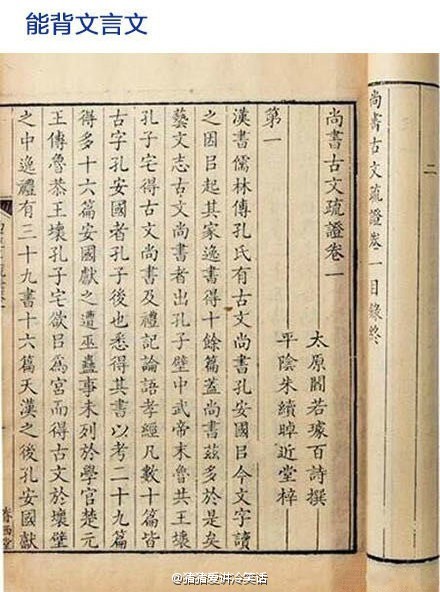 能背文言文
二
尚書古文疏證卷一目錄終
尚書古文疏證卷一
太原閻若璩百詩撰
平陰朱續晫近堂梓
第一
漢書儒林傳孔氏有古文尚書孔安國㠯今文字讀
之因㠯起其家逸書得十餘篇蓋尚書茲多於是矣
藝文志古文尚書者出孔子壁中武帝末魯共王壞
孔子宅得古文尚書及禮記論語孝經凡數十篇皆
古字孔安國者孔子後也悉得其書以考二十九篇
得多十六篇安國獻之遭巫蠱事未列於學官楚元
王傳魯恭王壞孔子宅欲㠯爲宮而得古文於壞壁
之中逸禮有三十九書十六篇天漢之後孔安國獻
@猪猪爱讲冷笑话